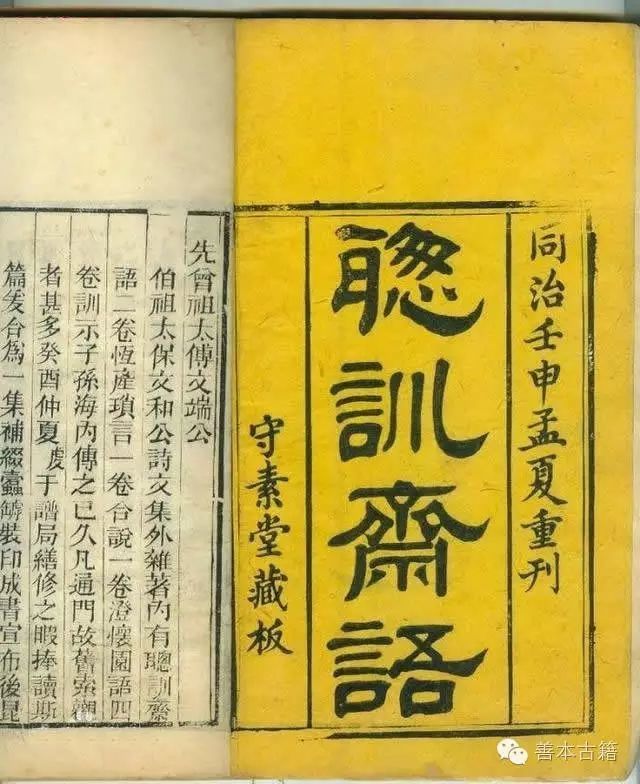 同治壬申孟夏重刊
聰訓齋語
守素堂藏板
先曾祖太傅文端公
伯祖太保文和公詩文集外雜著內有聰訓齋
語二卷恆產瑣言一卷合說一卷澄懷園語四
卷訓示子孫海內傳之已久凡通門故舊索觀
者甚多癸酉仲夏虔于譜局繕修之暇捧讀斯
篇爰合爲一集補綴蠹裝印成書宣布後昆
善本古籍